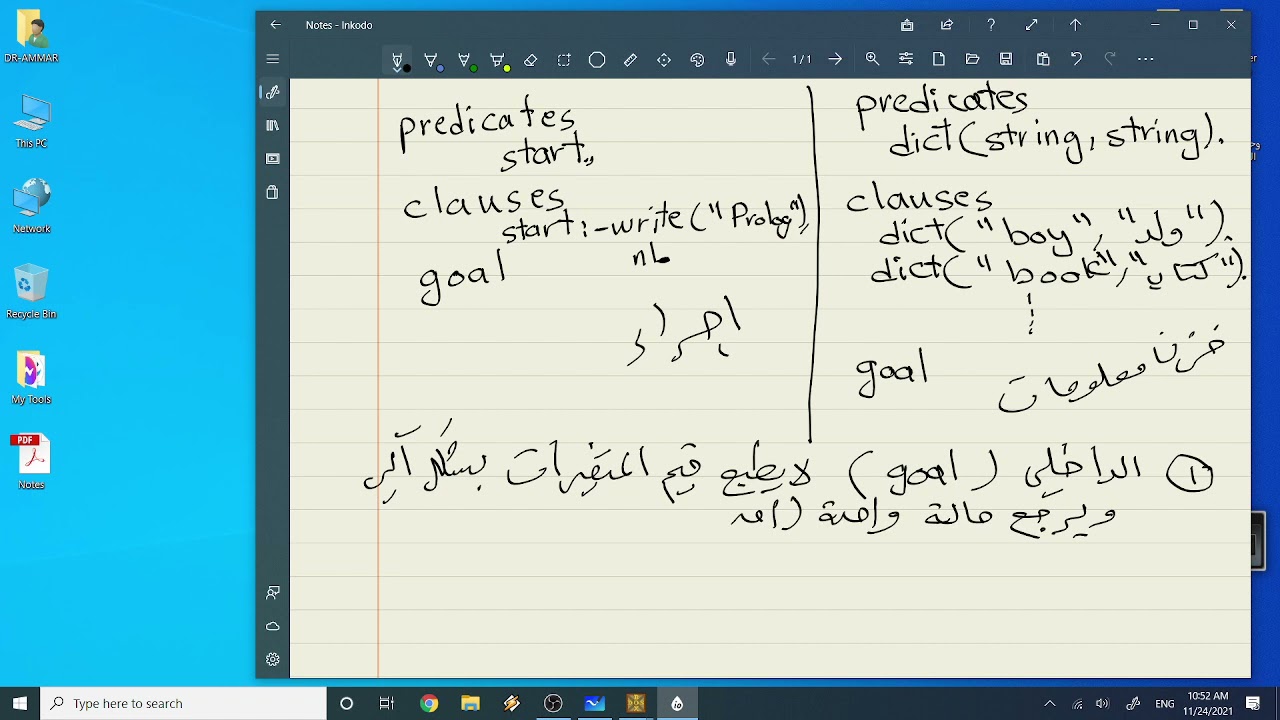 DR-AMMAR
This PC
Network
Recycle Bin
My Tools
PDF
Notes
Notes - Inkodo
1/1
predicates
start.
clauses
start:-write("Prolog"),
nl
goal
إجراء
predicates
dict(string, string).
clauses
dict("boy", "ولد").
dict("book", "كتاب").
goal
خزن معلومات
① الداخلي (goal) لا يطبع قيم المتغيرات بشكل آلي
ويرجع حالة واحدة
Type here to search
ENG
10:52 AM
11/24/2021